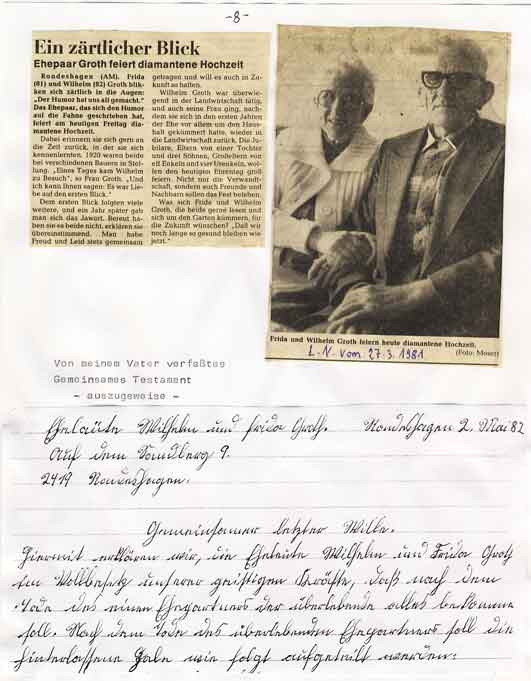 -8-
Ein zärtlicher Blick
Ehepaar Groth feiert diamantene Hochzeit
Rondeshagen (AM). Frida
(81) und Wilhelm (82) Groth blik-
ken sich zärtlich in die Augen:
„Der Humor hat uns alt gemacht.“
Das Ehepaar, das sich den Humor
auf die Fahne geschrieben hat,
feiert am heutigen Freitag dia-
mantene Hochzeit.
Dabei erinnern sie sich gern an
die Zeit zurück, in der sie sich
kennenlernten. 1920 waren beide
bei verschiedenen Bauern in Stel-
lung. „Eines Tages kam Wilhelm
zu Besuch“, so Frau Groth. „Und
ich kann Ihnen sagen: Es war Lie-
be auf den ersten Blick.“
Dem ersten Blick folgten viele
weitere, und ein Jahr später gab
man sich das Jawort. Bereut ha-
ben sie es beide nicht, erklären sie
übereinstimmend. Man habe
Freud und Leid stets gemeinsam
getragen und will es auch in Zu-
kunft so halten.
Wilhelm Groth war überwie-
gend in der Landwirtschaft tätig,
und auch seine Frau ging, nach-
dem sie sich in den ersten Jahren
der Ehe vor allem um den Haus-
halt gekümmert hatte, wieder in
die Landwirtschaft zurück. Die Ju-
bilare, Eltern von einer Tochter
und drei Söhnen, Großeltern von
elf Enkeln und vier Urenkeln, wol-
len den heutigen Ehrentag groß
feiern. Nicht nur die Verwandt-
schaft, sondern auch Freunde und
Nachbarn sollen das Fest beleben.
Was sich Frida und Wilhelm
Groth, die beide gerne lesen und
sich um den Garten kümmern, für
die Zukunft wünschen? „Daß wir
noch lange so gesund bleiben wie
jetzt.“
Frida und Wilhelm Groth feiern heute diamantene Hochzeit.
L.-N. vom 27.3.1981
(Foto: Moser)
Von meinem Vater verfaßtes
Gemeinsames Testament
- auszugsweise -
Eheleute Wilhelm und Frida Groth. Rondeshagen 2. Mai 82
Auf dem Sandberg 9.
2419 Rondeshagen.
Gemeinsamer letzter Wille.
Hiermit erklären wir, die Eheleute Wilhelm und Frida Groth
im Vollbesitz unserer geistigen Kräfte, daß nach dem
Tode des einen Ehepartners der überlebende alles bekommen
soll. Nach dem Tode des überlebenden Ehepartners soll die
hinterlassene Habe wie folgt aufgeteilt werden: